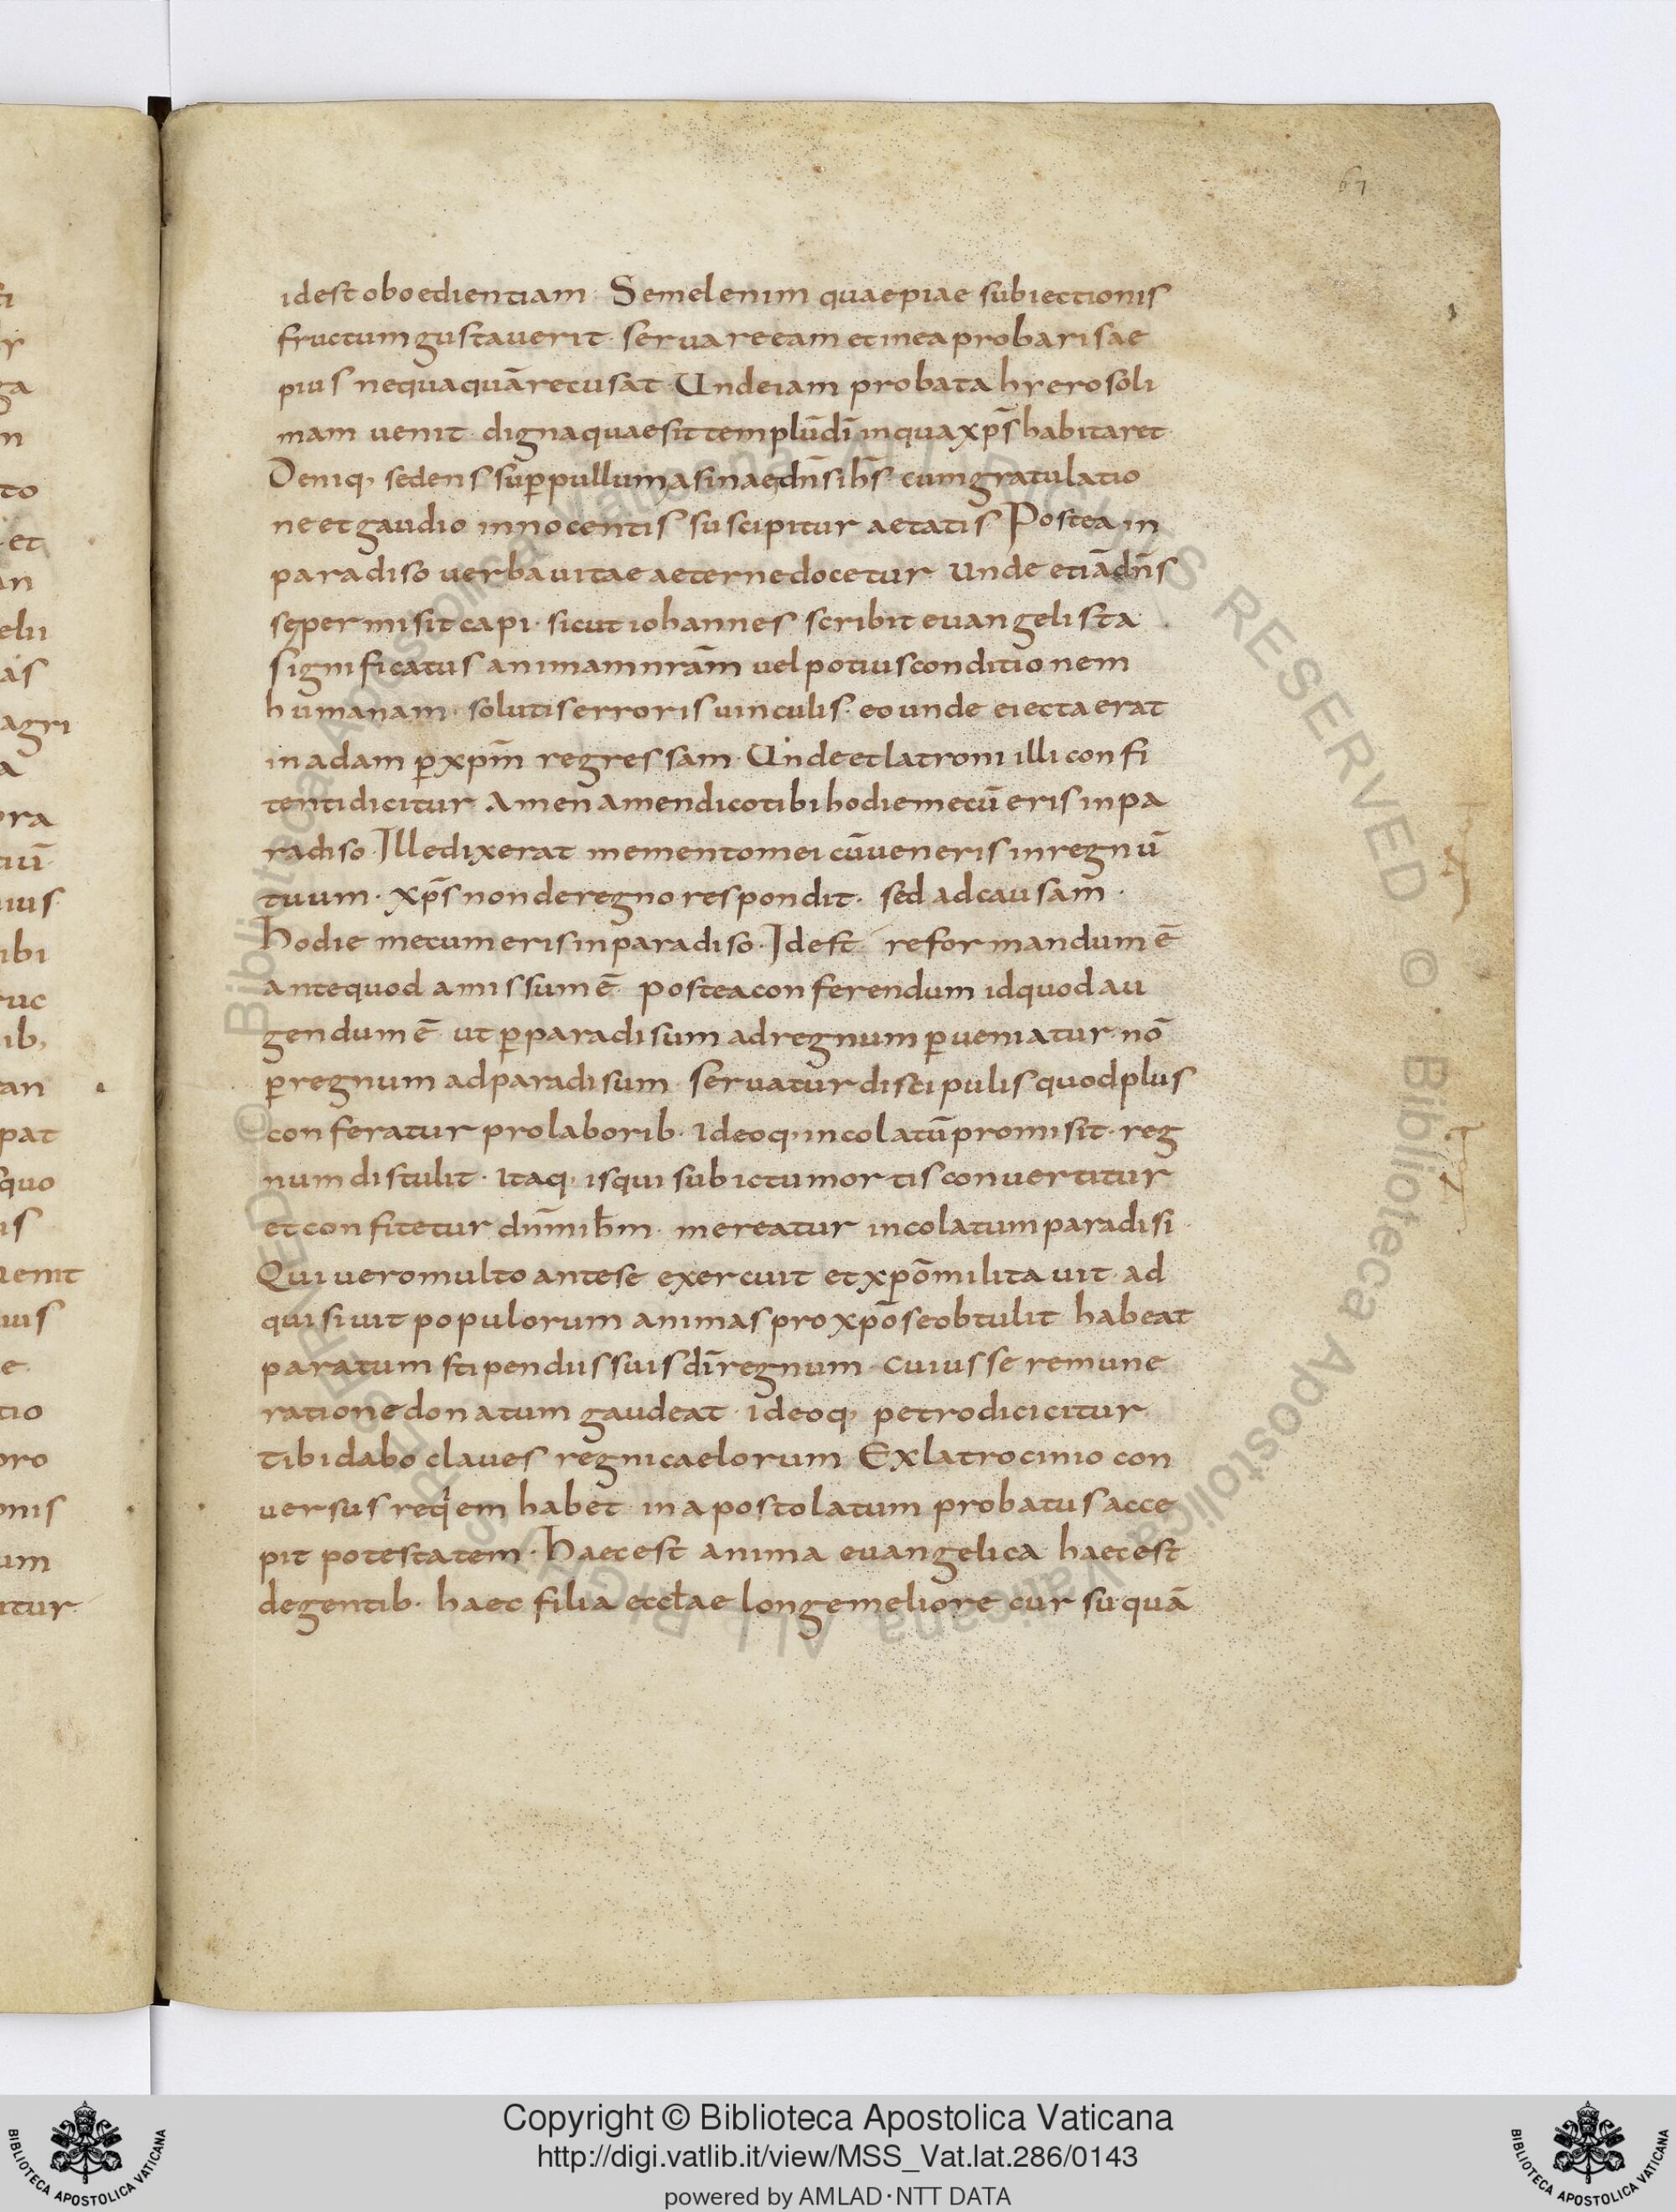 67
idest oboedientiam · Semel enim quae piae subiectionis
fructum gustauerit · seruare eam et in ea probari sae
pius nequaquā recusat · Unde iam probata hyerosoli
mam uenit · digna quae sit templū dī in qua xp̄s habitaret
Deniq; sedens sup̱ pullum asinae dn̄s ih̄s · cum gratulatio
ne et gaudio innocentis suscipitur aetatis Postea in
paradiso uerba uitae aeterne docetur Unde etiā dn̄s
se permisit capi · sicut iohannes scribit euangelista ·
significatus animam nrā̄m uel potius conditionem
humanam · solutis erroris uinculis · eo unde eiecta erat
in adam p̱ xp̄m regressam · Unde et latroni illi confi
tenti dicitur Amen amen dico tibi hodie mecū eris in pa
radiso · Ille dixerat memento mei cū ueneris in regnū
tuum · xp̄s non de regno respondit · sed ad causam ·
hodie mecum eris in paradiso · Idest reformandum ē
ante quod amissum ē · postea conferendum id quod au
gendum ē ut p̱ paradisum ad regnum p̱ueniatur · nō
p̱ regnum ad paradisum · seruatur discipulis quod plus
conferatur pro laborib · Ideoq; incolatū promisit · reg
num distulit · Itaq; is qui sub ictu mortis conuertitur
et confitetur dn̄m ih̄m · mereatur incolatum paradisi ·
Qui uero multo ante se exercuit et xp̄o militauit · ad
quisiuit populorum animas pro xp̄o se obtulit habeat
paratum stipendiis suis dī regnum · cuius se remune
ratione donatum gaudeat · ideoq; petro dicicitur
tibi dabo claues regni caelorum Ex latrocinio con
uersus req̇em habet in apostolatum probatus acce
pit potestatem · Haec est anima euangelica haec est
degentib · haec filia eccl̄ae longe meliore cursu quā
© Biblioteca Apostolica Vaticana ALL RIGHTS RESERVED
Copyright © Biblioteca Apostolica Vaticana
http://digi.vatlib.it/view/MSS_Vat.lat.286/0143
powered by AMLAD·NTT DATA
BIBLIOTECA APOSTOLICA VATICANA
BIBLIOTECA APOSTOLICA VATICANA